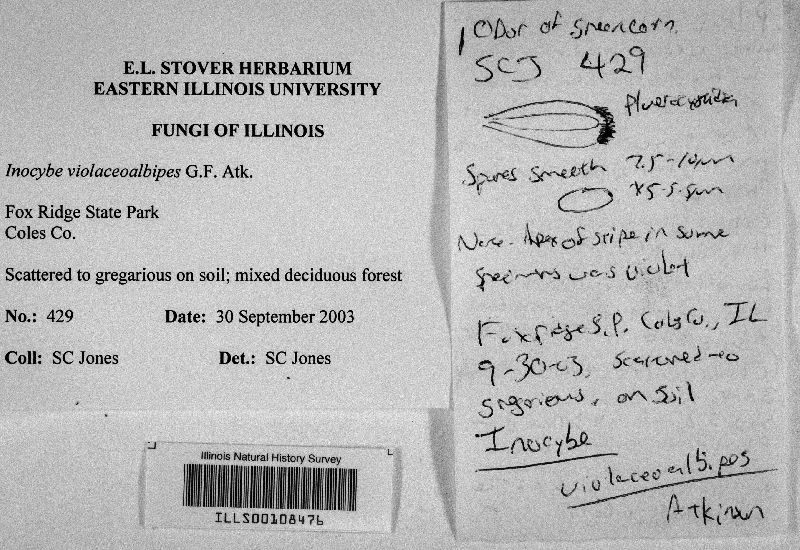 E.L. STOVER HERBARIUM
EASTERN ILLINOIS UNIVERSITY
FUNGI OF ILLINOIS
Inocybe violaceoalbipes G.F. Atk.
Fox Ridge State Park
Coles Co.
Scattered to gregarious on soil; mixed deciduous forest
No.: 429 Date: 30 September 2003
Coll: SC Jones Det.: SC Jones
Illinois Natural History Survey
ILLS00108476
Odor of greencorn
SCJ 429
Spores smooth 7.5-10μm
x5-5.5μm
Note - Apex of stipe in some
specimens was violet
Fox Ridge S.P. Coles Co., IL
9-30-03, scattered to
gregarious, on soil
Inocybe
violaceoalbipes
Atkinson